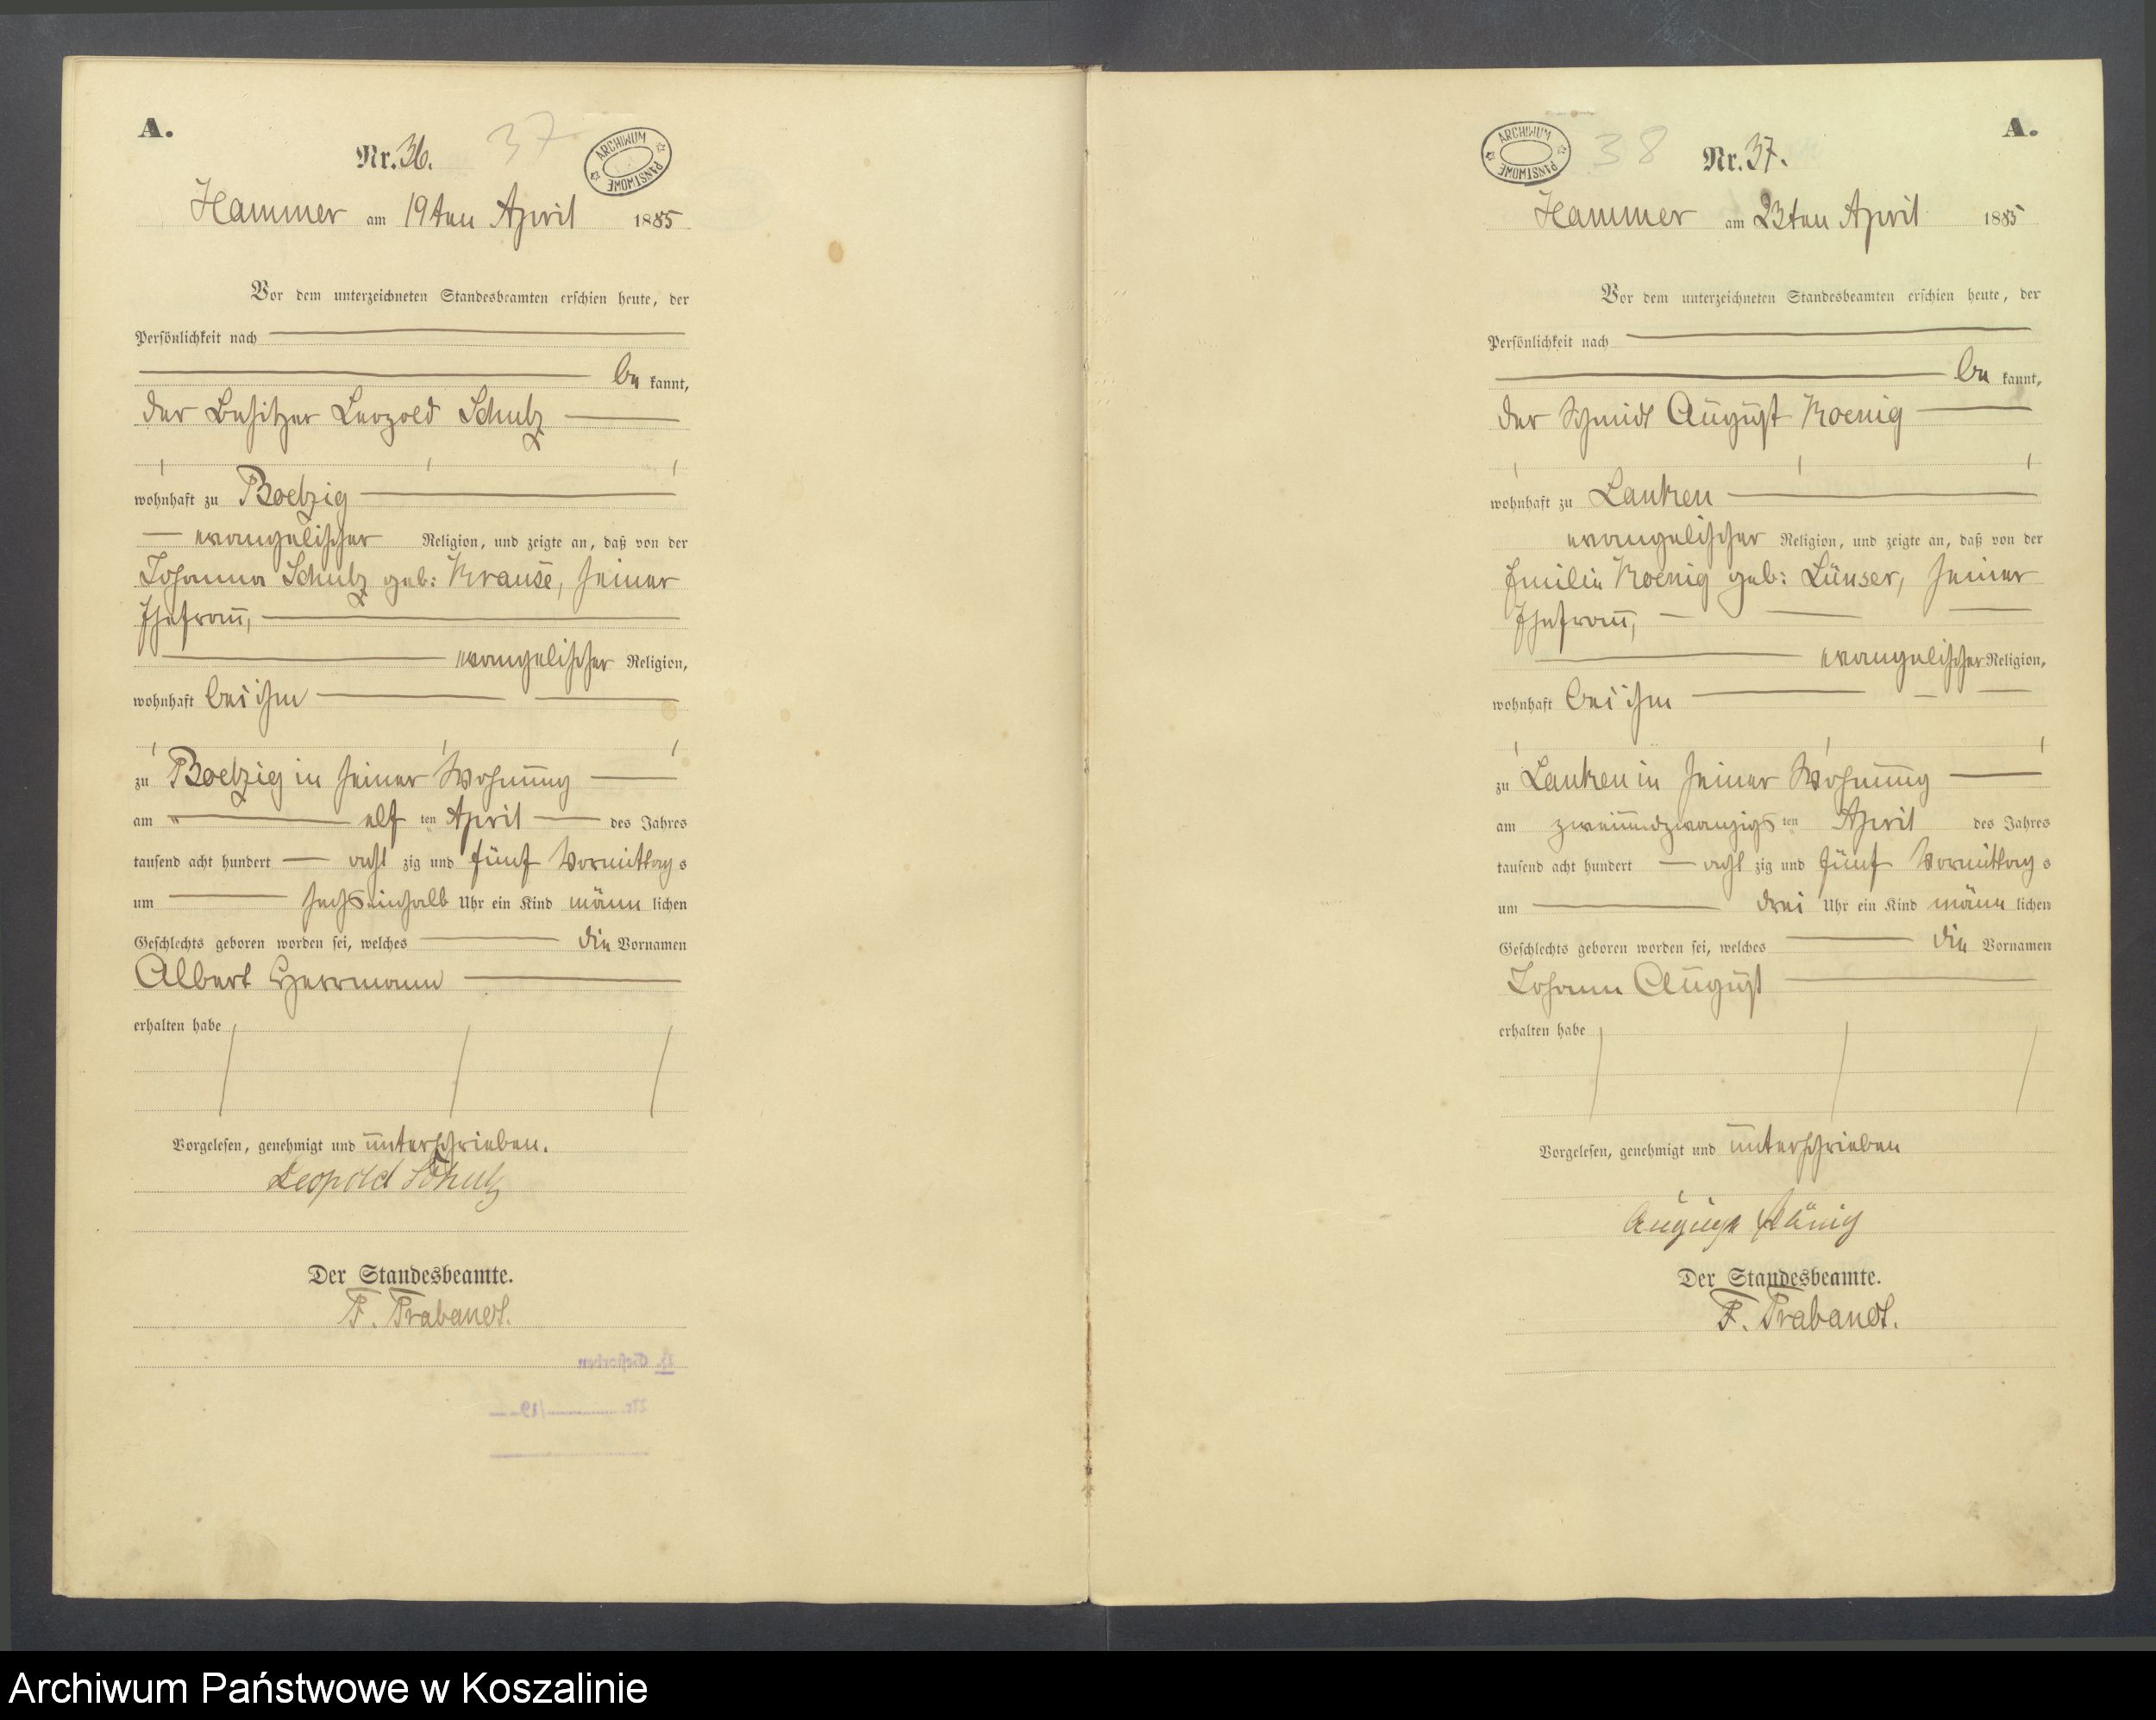 A.
Nr. 36. 37
ARCHIWUM PAŃSTWOWE
Hammer am 19ten April 1885
Vor dem unterzeichneten Standesbeamten erschien heute, der
Persönlichkeit nach
be kannt,
der Besitzer Leopold Schulz
wohnhaft zu Boetzig
evangelischer Religion, und zeigte an, daß von der
Johanna Schulz geb: Krause, seiner
Ehefrau,
evangelischer Religion,
wohnhaft bei ihm
zu Boetzig in seiner Wohnung
am elf ten April des Jahres
tausend acht hundert acht zig und fünf Vormittag s
um sechseinhalb Uhr ein Kind männ lichen
Geschlechts geboren worden sei, welches die Vornamen
Albert Herrmann
erhalten habe
Vorgelesen, genehmigt und unterschrieben.
Leopold Schulz
Der Standesbeamte.
F. Prabandt.
Gestorben
Nr. /19
A.
ARCHIWUM PAŃSTWOWE
38 Nr. 37.
Hammer am 23ten April 1885
Vor dem unterzeichneten Standesbeamten erschien heute, der
Persönlichkeit nach
be kannt,
der Schmidt August Koenig
wohnhaft zu Lanken
evangelischer Religion, und zeigte an, daß von der
Emilie Koenig geb: Lünser, seiner
Ehefrau,
evangelischer Religion,
wohnhaft bei ihm
zu Lanken in seiner Wohnung
am zweiundzwanzigs ten April des Jahres
tausend acht hundert acht zig und fünf Vormittag s
um drei Uhr ein Kind männ lichen
Geschlechts geboren worden sei, welches die Vornamen
Johann August
erhalten habe
Vorgelesen, genehmigt und unterschrieben
August König
Der Standesbeamte.
F. Prabandt.
Archiwum Państwowe w Koszalinie